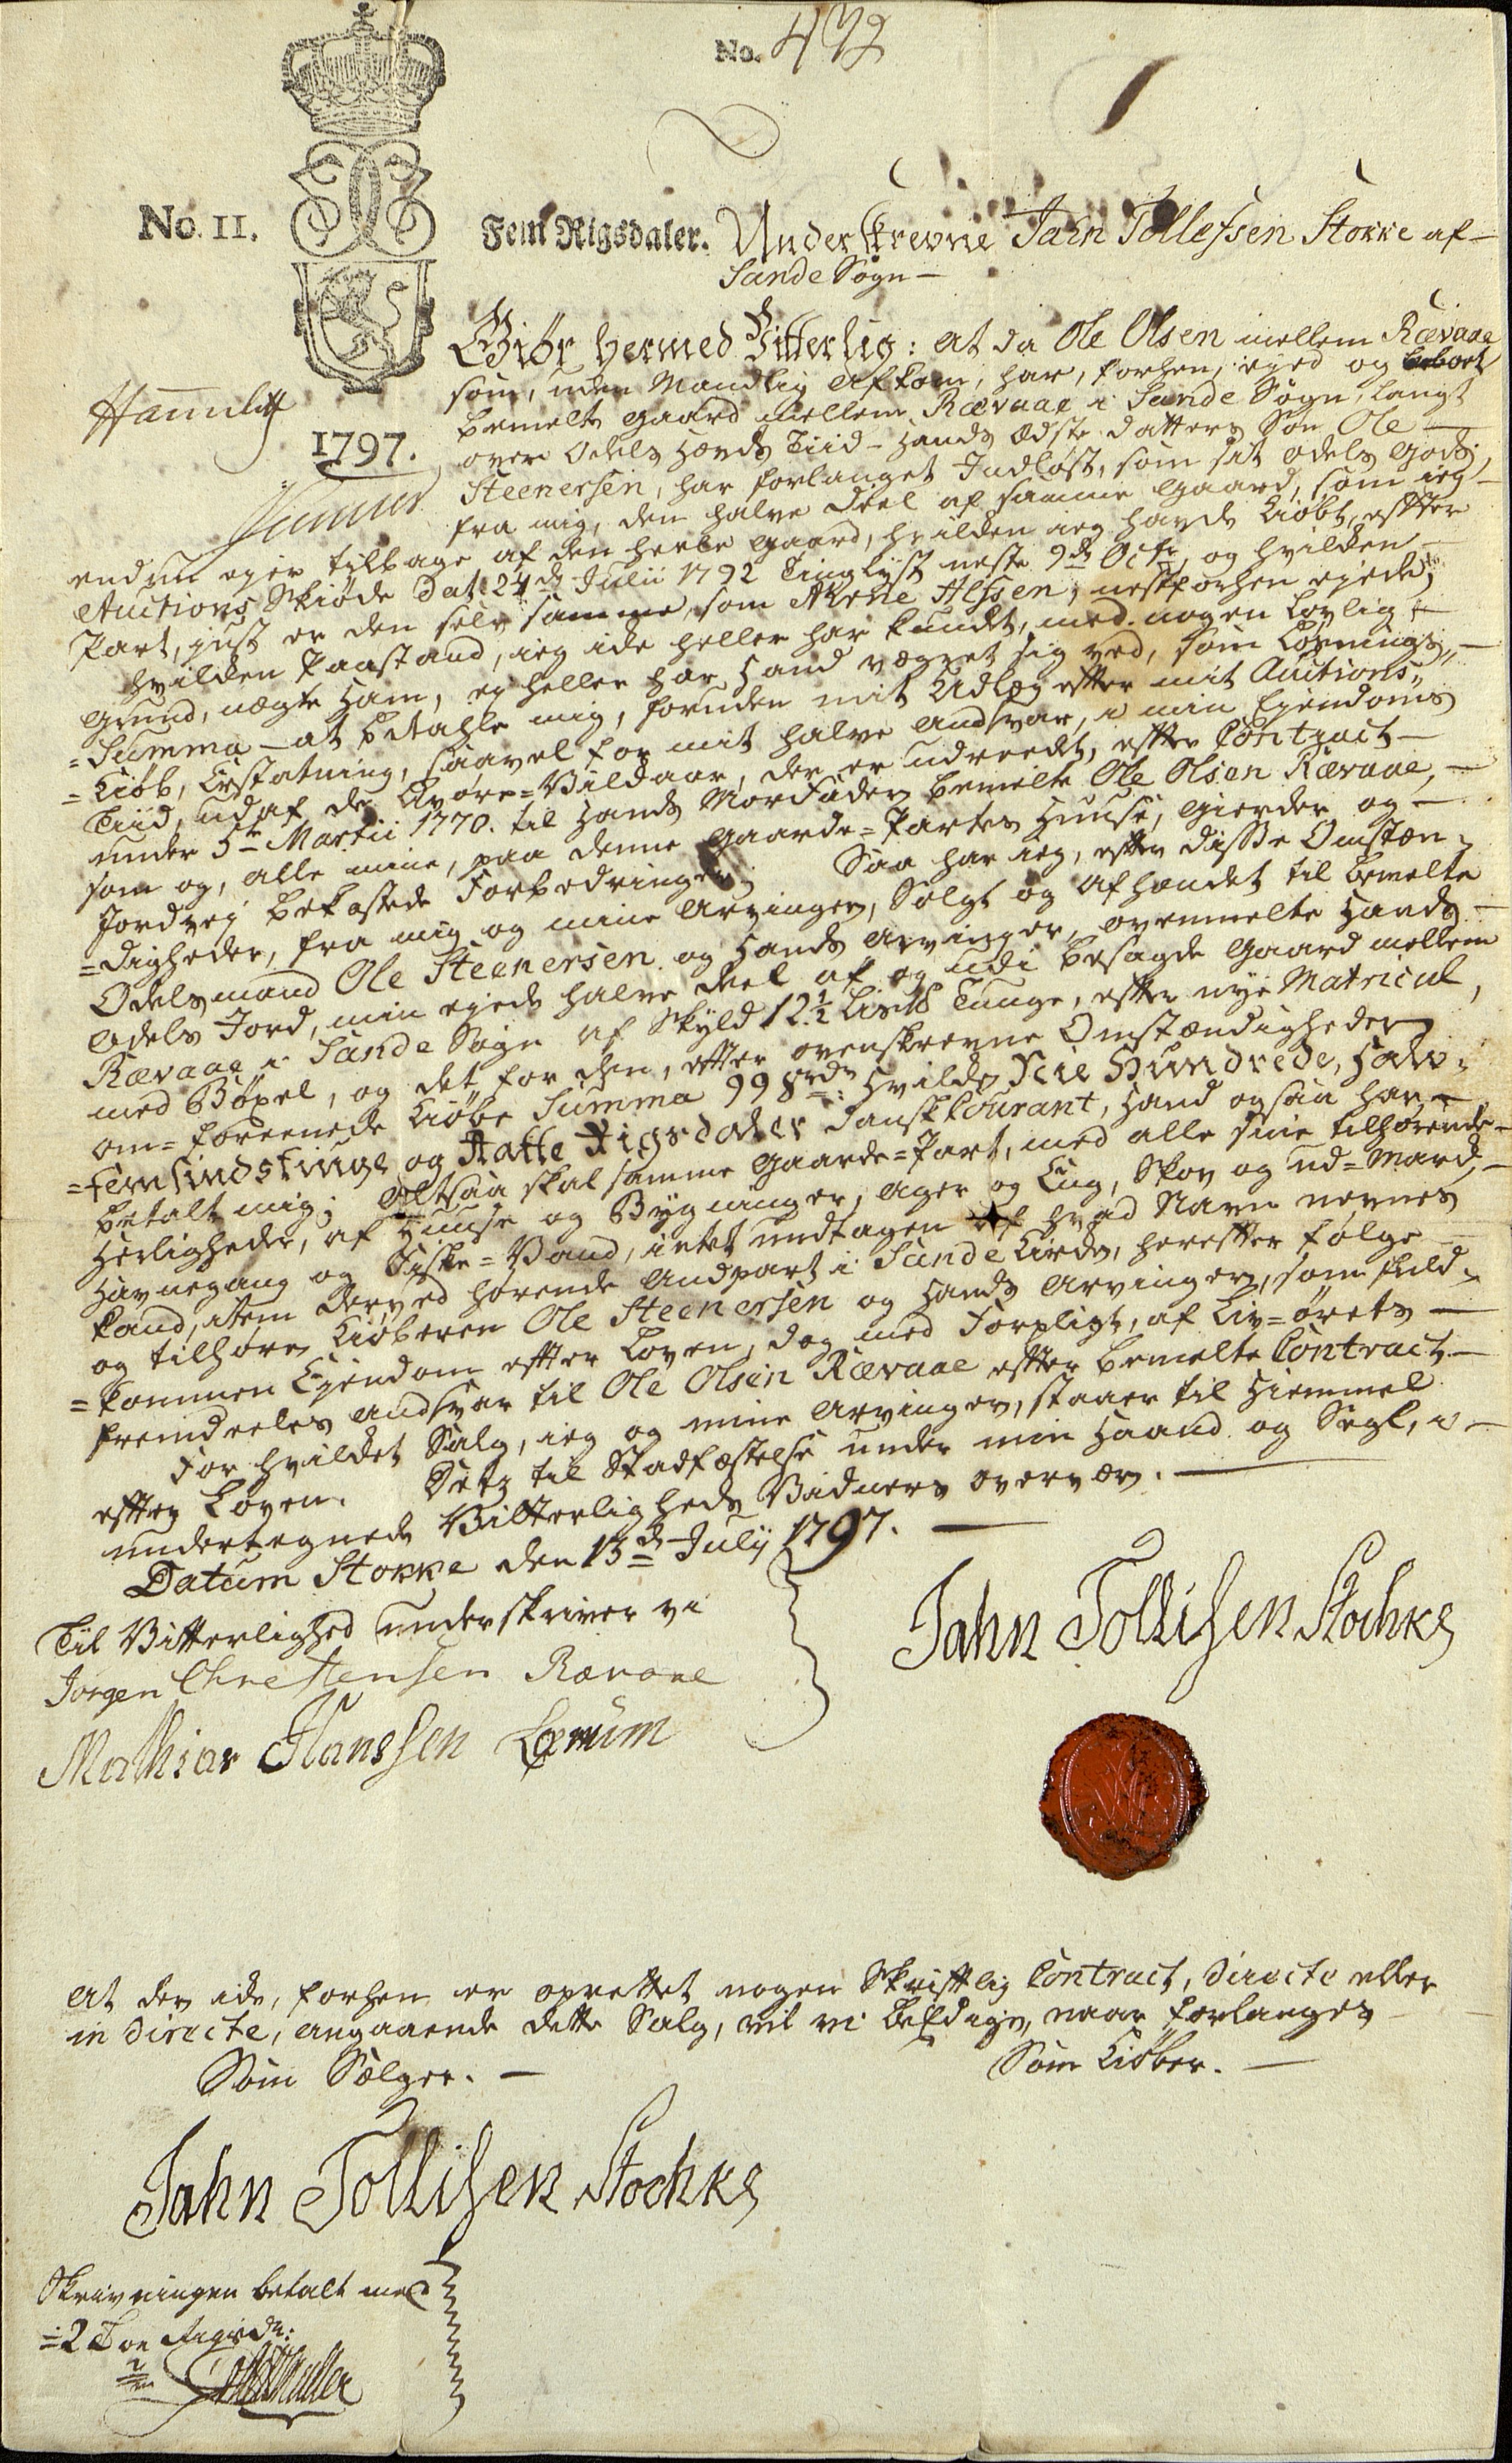 No. 472
No. 11.
Fem Rigsdaler. Underskrevne Jahn Tollefsen Stokke af
Sande Sogn
Giør hermed Vitterlig: at da Ole Olsen mellem Rævaae
som, uden Mandlig Afkom, har, forhen, eyed og beboet
1797.
bemelte gaard mellem Rævaae i Sande Sogn, langt
over Odels Hævds Tiid - Hands Ædste Datters Søn Ole
Steenersen, har forlanget Indløst, som sit odels gods,
fra mig, den halve Deel af samme gaard, som ieg
endnu ejer tilbage af den heele gaard, hvilken ieg havde Kiøbt, effter
Auctions Skiøde Dat: 24de Julii 1792 Tinglyst neste 9de Octr, og hvilken
Part, just er den selv samme, som Arne Alfsen, nestforhen ejede;
hvilken Paastand, ieg icke heller har kundt, med nogen Lovlig
grund, nægte Ham, ej heller har Hand vægret sig ved, som Løsnings
=Summa - at betahle mig, foruden mit Udlæg effter mit Auctions
=Kiøb, Erstatning, saavel for mit halve andsvar, i min Ejendoms
Tiid, udaf de Livøre=Vilckaar, der er udreedt, effter Contract
under 5te Martii 1770. til Hands MorFader bemelte Ole Olsen Rævaae,
som og, alle mine, paa denne Gaarde=Partes Huuse, Gierder og
Jordvej bekostede Forbedringer; Saa har ieg, effter disse Omstæn
=digheder, fra mig og mine Arvinger, Solgt og Afhændet til bemelte
Odelsmand Ole Steenersen og Hands Arvinger, ovenmelte Hands
Odels Jord, min ejede halve Deel af og udi besagde Gaard mellem
Rævaae i Sande Sogn af Skyld 12½ Lispd Tunge, effter nye Matricul,
med Bøxel, og det for den, effter ovenskrevne Omstændigheder
om=foreenede Kiøbe Summa 998 rdr: Hvilde Nie Hundrede, Halv
=femsindstiuge og Aatte Rigsdaler Dansk Courant, Hand ogsaa har
betalt mig; Altsaa skal samme Gaarde=Part, med alle sine tilhørende
Herligheder, af Huuse og Bygninger, Ager og Eng, Skov og ud=Mard,
Havnegang og Fiske=Vand, intet undtagen af hvad Navn nevnes
kand, item derved hørende Andpart i Sande Kirke, hereffter følge
og tilhøre Kiøberen Ole Steenersen og Hands Arvinger, som fuld
=kommen Ejendom effter Loven, dog med Forpligt, af Liv=ørets
fremdeeles andsvar til Ole Olsen Rævaae effter bemelte Contract.
For hvilket Salg, ieg og mine Arvinger, staaer til Hiemmel
effter Loven. Dette til Stadfæstelse under min Haand og Segl, i
undertegnede Vitterligheds Vidners overvær.
Datum Stokke den 13de July 1797.
Til Vitterlighed underskriver vi
Jørgen Chrestensen Rævaae
Mathias Hanssen
Jahn Tollisen Stochke
At der icke, forhen er oprettet nogen Skrifftlig Contract, directe eller
in directe, angaaende dette Salg, vil vi beEdige, naar forlanges
Som Sælger.
Som Kiøber.
Jahn Tollisen Stochke
Skrivningen betalt med
=2 Toe Rigsdr: